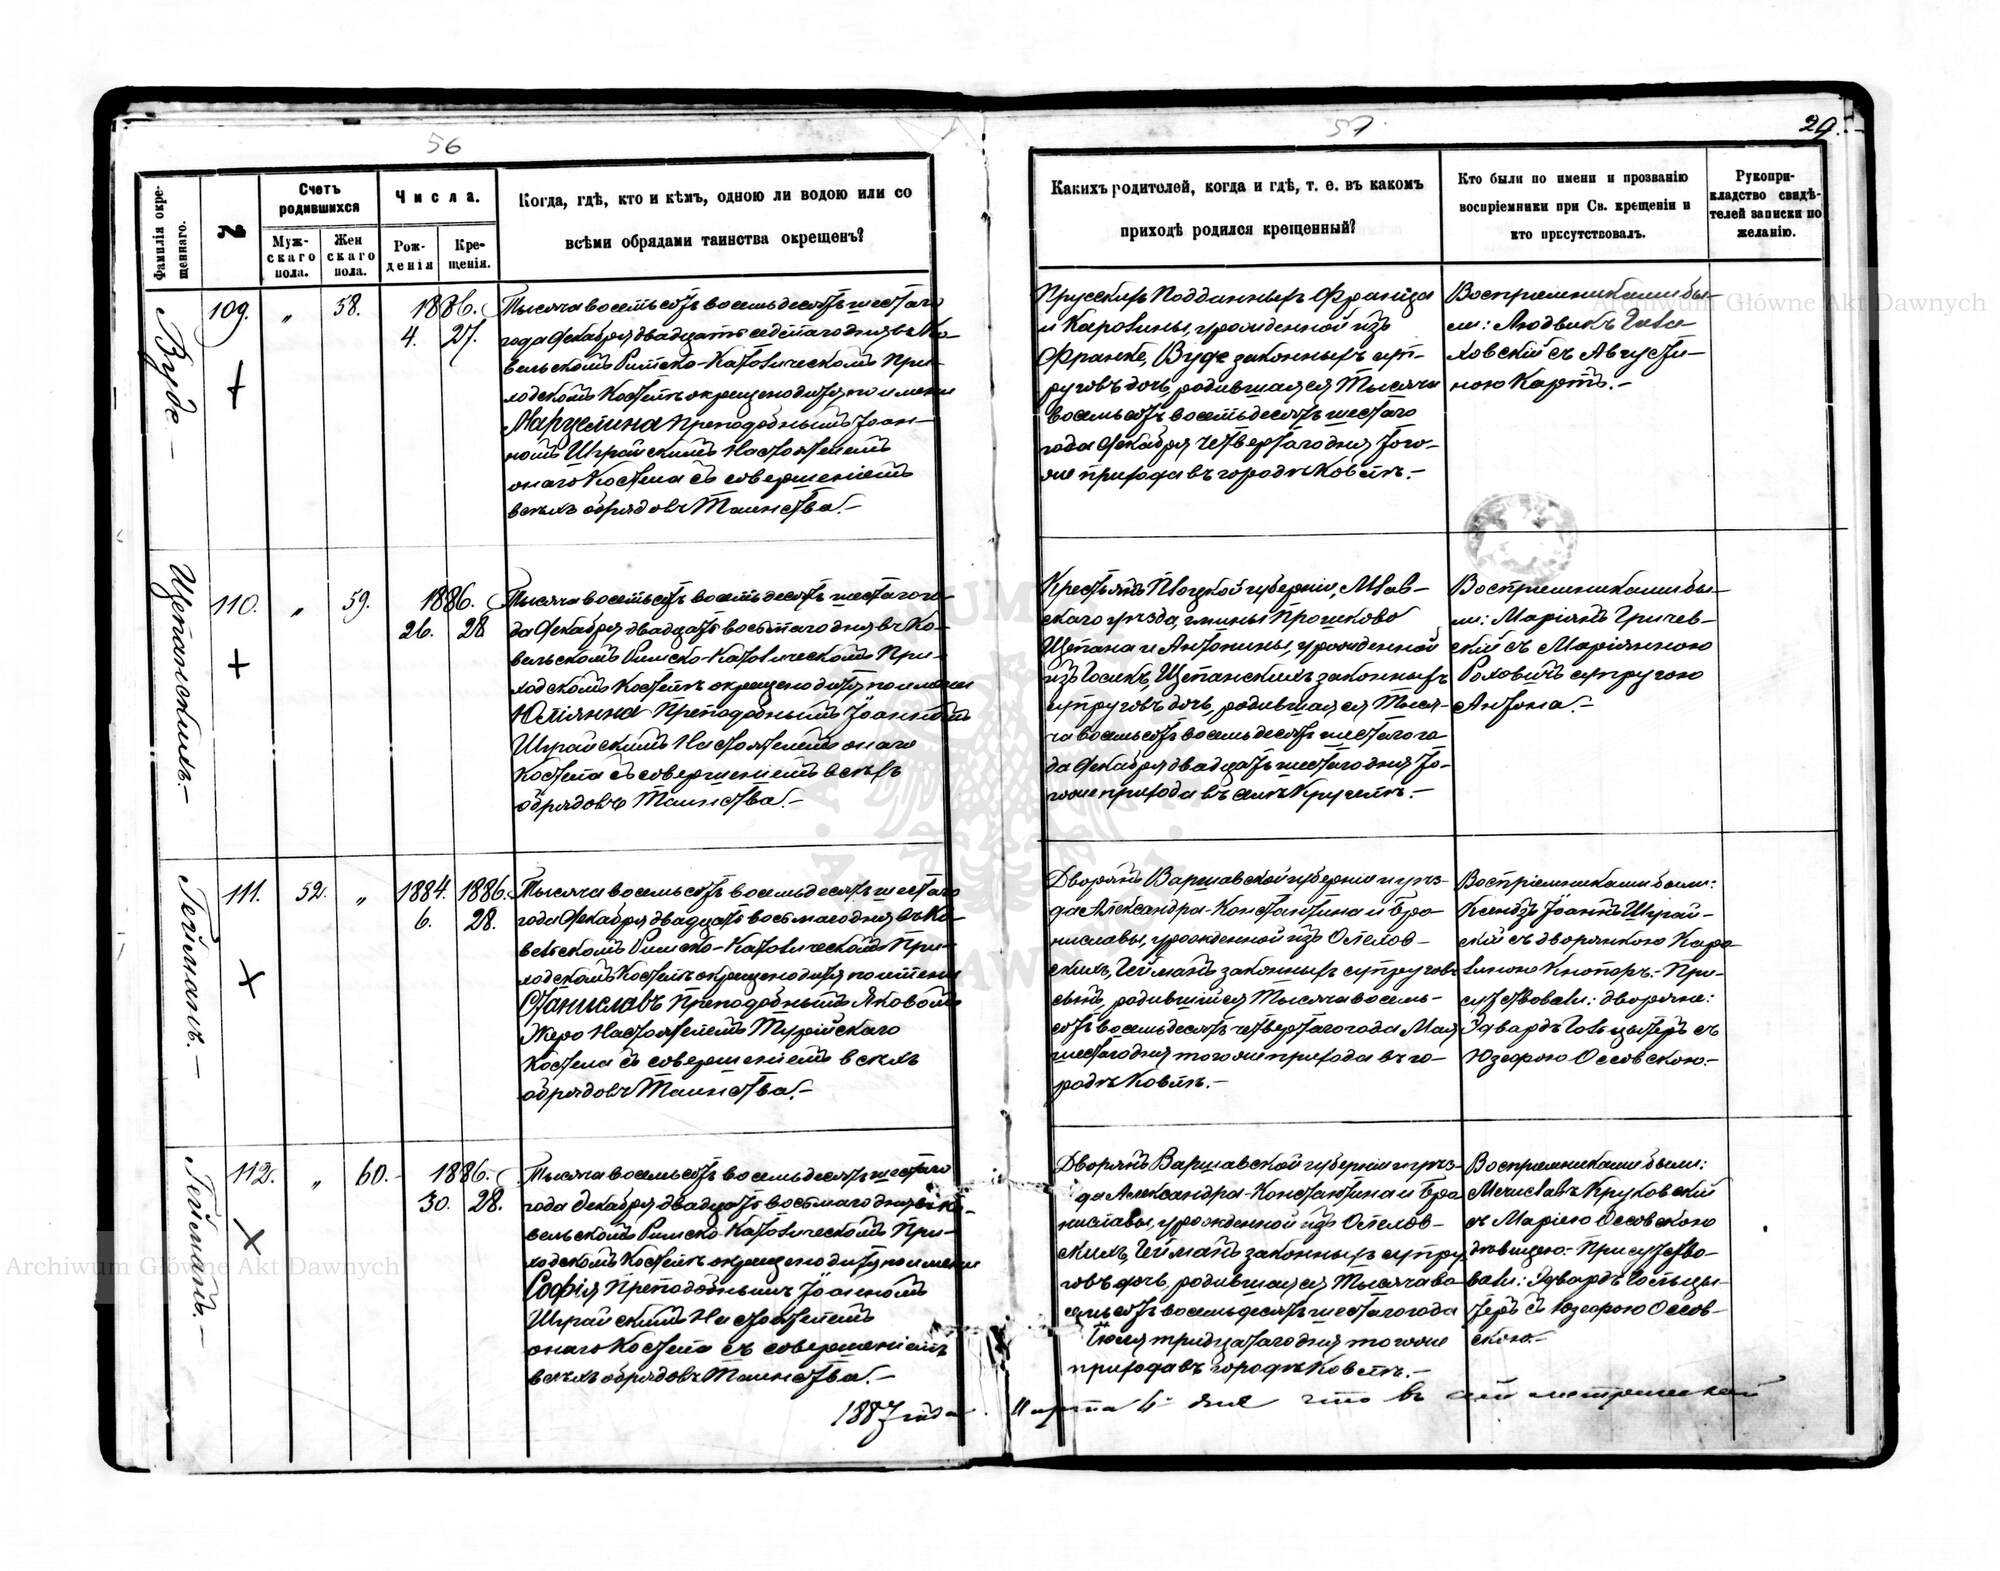 56
57
29.
Фамилія окрещеннаго.
№
Счетъ родившихся
Мужскаго пола.
Женскаго пола.
Числа.
Рожденія
Крещенія.
Когда, гдѣ, кто и кѣмъ, одною ли водою или со
всѣми обрядами таинства окрещенъ?
Какихъ родителей, когда и гдѣ, т. е. въ какомъ
приходѣ родился крещенный?
Кто были по имени и прозванію
воспріемники при Св. крещеніи и
кто присутствовалъ.
Рукопри-
кладство свидѣ-
телей записки по
желанію.
Вуде. —
109.
„
58.
1886.
4. 27.
Тысяча восемьсотъ восемьдесятъ шестаго
года Декабря двадцать седмаго дня въ Ко-
вельскомъ Римско-Католическомъ При-
ходскомъ Костелѣ окрещено дитя по имени
Марцелина Преподобнымъ Іоан-
номъ Шурайскимъ Настоятелемъ
онаго Костела съ совершеніемъ
всѣхъ обрядовъ Таинства.—
Прусскихъ Подданныхъ Франца
и Каролины, урожденной изъ
Франке, Вуде законныхъ суп-
руговъ дочь, родившаяся Тысяча
восемьсотъ восемьдесятъ шестаго
года Декабря четвертаго дня того-
же прихода въ городѣ Ковелѣ.—
Воспріемниками бы-
ли: Людвикъ
ховскій съ Августи-
ною Картъ.—
Щепанскихъ.—
110.
„
59.
1886.
26. 28
Тысяча восемьсотъ восемьдесятъ шестаго го-
да Декабря двадцать восьмаго дня въ Ко-
вельскомъ Римско-Католическомъ При-
ходскомъ Костелѣ окрещено дитя по имени
Юліянна Преподобнымъ Іоанномъ
Шурайскимъ Настоятелемъ онаго
Костела съ совершеніемъ всѣхъ
обрядовъ Таинства.—
Крестьянъ Плоцкой губерніи, Млав-
скаго уѣзда, гмины Прошково
Щепана и Антонины, урожденной
изъ Госикъ, Щепанскихъ законныхъ
супруговъ дочь, родившаяся Тыся-
ча восемьсотъ восемьдесятъ шестаго го-
да Декабря двадцать шестаго дня то-
гоже прихода въ селѣ Крухелѣ.—
Воспріемниками бы-
ли: Маріянъ Гричев-
скій съ Маріянною
Роховичъ супругою
Антона.—
Гейманъ.—
111.
52.
„
1884. 1886.
6. 28.
Тысяча восемьсотъ восемьдесятъ шестаго
года Декабря двадцать восьмаго дня въ Ко-
вельскомъ Римско-Католическомъ При-
ходскомъ Костелѣ окрещено дитя по имени
Станиславъ Преподобнымъ Яковомъ
Жеро Настоятелемъ Турійскаго
Костела съ совершеніемъ всѣхъ
обрядовъ Таинства.—
Дворянъ Варшавской губерніи и уѣз-
да Александра-Константина и Бро-
ниславы, урожденной изъ Опелов-
скихъ, Гейманъ законныхъ супруговъ
сынъ, родившійся Тысяча восемь-
сотъ восемьдесятъ четвертаго года Мая
шестаго дня тогоже прихода въ го-
родѣ Ковелѣ.—
Воспріемниками были:
Ксендзъ Іоаннъ Шурай-
скій съ дворянкою Каро-
линою Кнопоръ.— При-
сутствовали: дворяне:
Эдвардъ Гольцшеръ съ
Юзефою Оссовскою.—
Гейманъ.—
112.
„
60.
1886.
30. 28.
Тысяча восемьсотъ восемьдесятъ шестаго
года Декабря двадцать восьмаго дня въ Ко-
вельскомъ Римско-Католическомъ При-
ходскомъ Костелѣ окрещено дитя по имени
Софія Преподобнымъ Іоанномъ
Шурайскимъ Настоятелемъ
онаго Костела съ совершеніемъ
всѣхъ обрядовъ Таинства.—
Дворянъ Варшавской губерніи и уѣз-
да Александра-Константина и Бро
ниславы, урожденной изъ Опелов-
скихъ, Гейманъ законныхъ супру
говъ дочь, родившаяся Тысяча во
семьсотъ восемьдесятъ шестаго года
Іюля тридцатаго дня тогоже
прихода въ городѣ Ковелѣ.—
Воспріемниками были:
Мечиславъ Круковскій
съ Маріею Оссовскою
дѣвицею.— Присутство-
вали: Эдвардъ Гольцы-
херъ съ Юзефою Оссов-
скою.—
1887 года Марта 4 дня что въ сей метрической
Archiwum Główne Akt Dawnych
Archiwum Główne Akt Dawnych